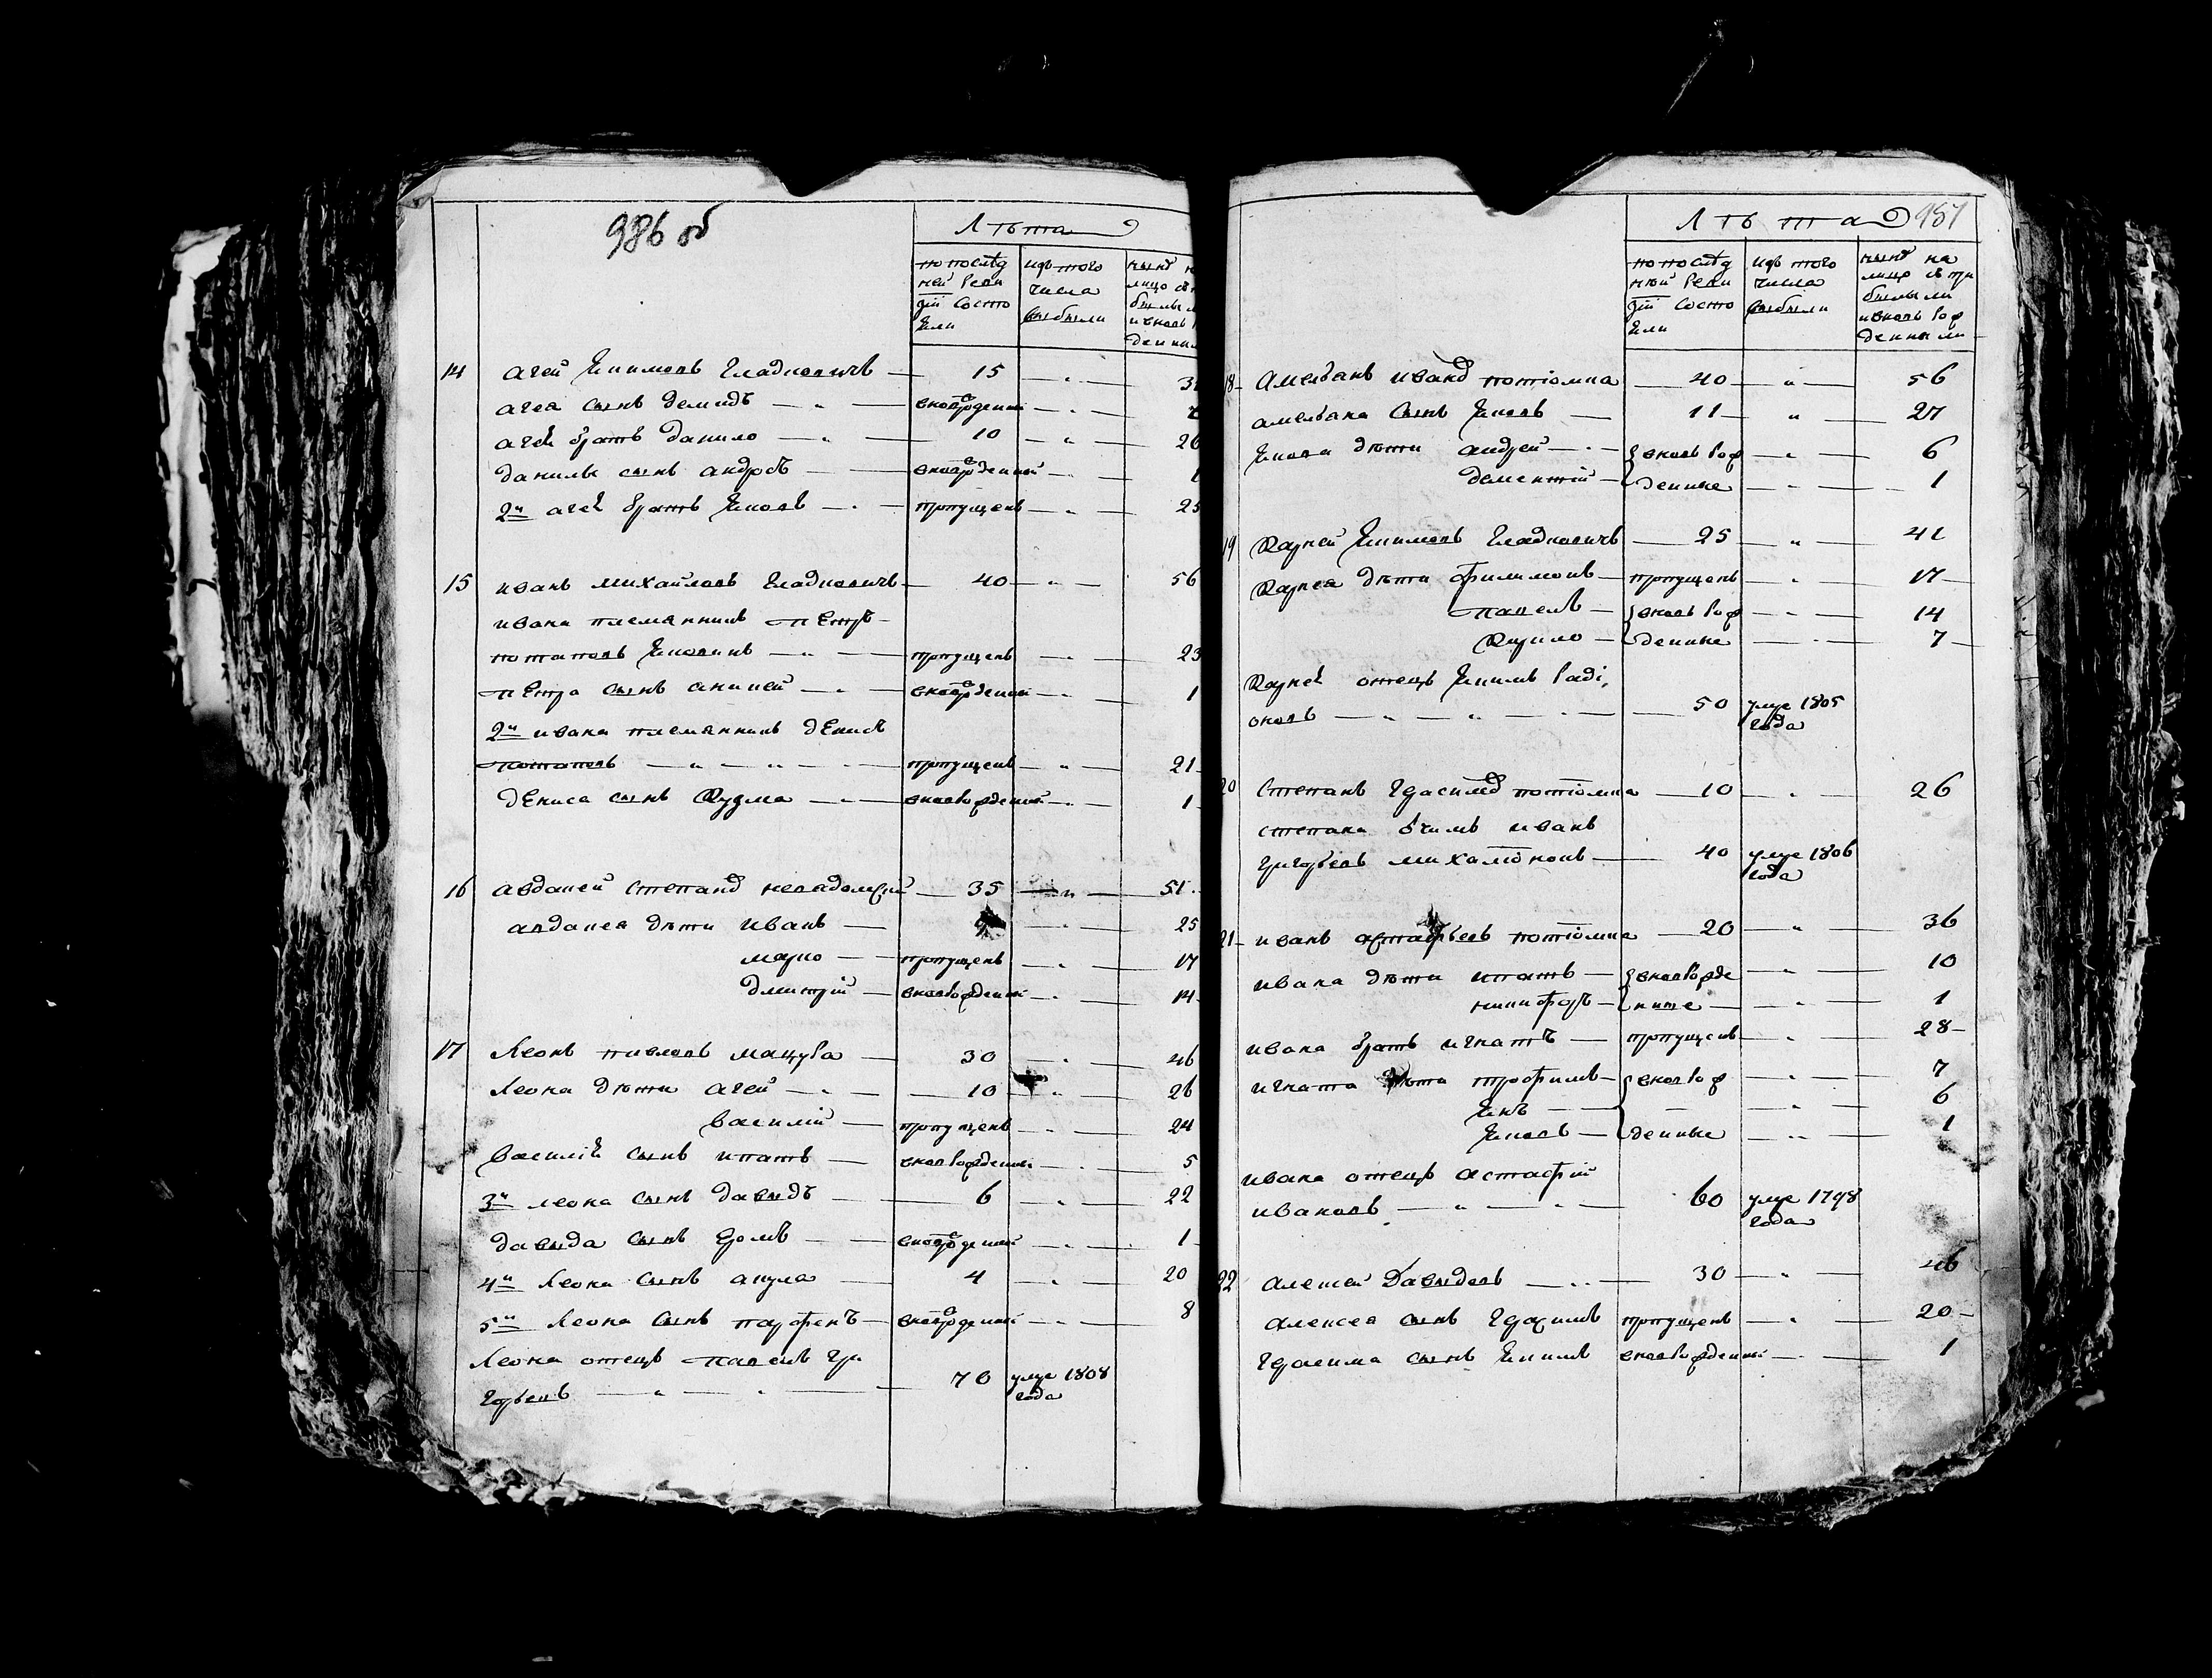 986 об
Лѣта
по послѣд ней реви зіи состо яли
изъ того числа выбыли
нынѣ лицо
14 Агей Якимовъ Гладковичъ — 15 — „ —
Агея сынъ Демидъ — „ — вновьрожденный — „ —
Агея братъ Данило — „ — 10 — „ — 26
Данилы сынъ Андрей — вновьрожденный — „ — 1
2й Агея братъ Яковъ — пропущенъ — „ — 25
15 Иванъ Михайловъ Гладковичъ — 40 — „ — 56
Ивана племянникъ Петръ
Потаповъ Яковинъ — „ — пропущенъ — „ — 23
Петра сынъ Ананей — „ — вновьрожденный — „ — 1
2й Ивана племянникъ Денисъ
Потаповъ — „ — „ — пропущенъ — „ — 21
Дениса сынъ Кузма — „ — вновьрожденный — „ — 1
16 Авданей Степанов — 35 — „ — 51
Авданея дѣти Иванъ — „ — 25
Марко — пропущенъ — „ — 17
Дмитрій — вновьрожденный — „ — 14
17 Леонъ Павловъ Мацура — 30 — „ — 46
Леона дѣти Агей — „ — 10 — „ — 26
Василій — пропущенъ — „ — 24
Василія сынъ Ипатъ — вновьрожденный — „ — 5
3й Леона сынъ Давыдъ — 6 — „ — 22
Давыда сынъ — вновьрожденный — „ — 1
4й Леона сынъ Акула — 4 — „ — 20
5й Леона сынъ Парфенъ — вновьрожденный — „ — 8
Леона отецъ Павелъ Гри
горьевъ — „ — „ — 70 умре 1808 года
Лѣта 987
по послѣд ней реви зіи состо яли
изъ того числа выбыли
нынѣ на лицо съ при былыми и вновь рож денными
18 Амельянъ Иванов Потіомка — 40 — „ — 56
Амельяна сынъ Яковъ — 11 — „ — 27
Якова дѣти Андрей — „ — вновь рож — „ — 6
Дементій — денные — „ — 1
19 Карней Якимовъ Гладковичъ — 25 — „ — 41
Карнея дѣти Филимонъ — пропущенъ — „ — 17
Павелъ — вновь рож — „ — 14
Кирило — денные — „ — 7
Карнея отецъ Якимъ Раді,
оновъ — „ — „ — 50 умре 1805 года
20 Степанъ Герасимов Потіомка — 10 — „ — 26
Степана вчимъ Иванъ
Григорьевъ — 40 умре 1806 года
21 Иванъ Астафьевъ Потіомка — 20 — „ — 36
Ивана дѣти Ипатъ — вновьрожде — „ — 10
Никифоръ — нные — „ — 1
Ивана братъ Игнатъ — пропущенъ — „ — 28
Игната дѣти Трофимъ — вновь рож — „ — 7
Янъ — „ — 6
Яковъ — денные — „ — 1
Ивана отецъ Астафій
Ивановъ — „ — „ — 60 умре 1798 года
22 Алексей Давыдовъ — „ — 30 — „ — 46
Алексея сынъ Герасимъ пропущенъ — „ — 20
Герасима сынъ Якимъ вновьрожденный — „ — 1